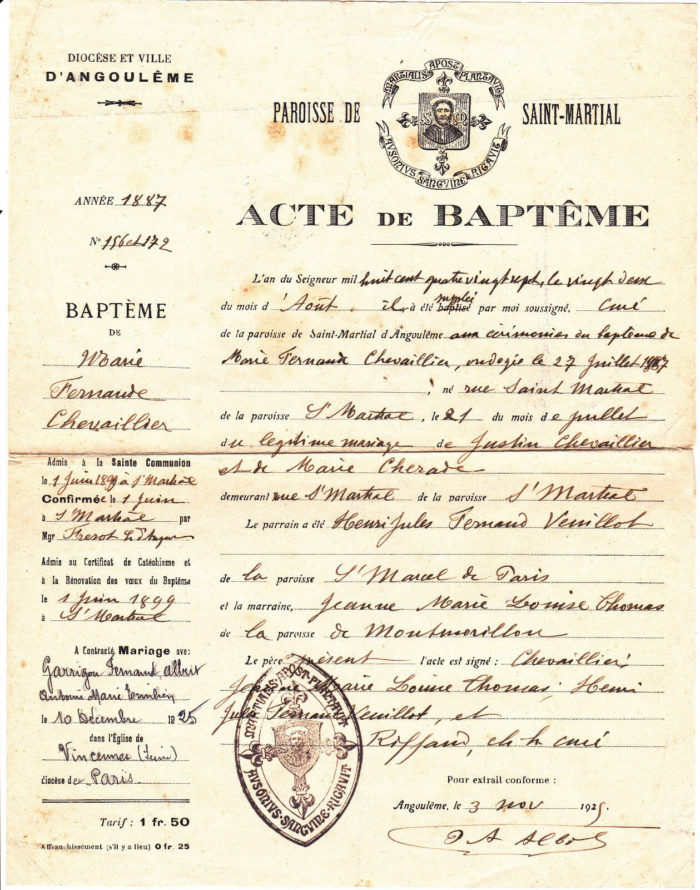 DIOCÈSE ET VILLE
D'ANGOULÊME
MARTIALIS APOST PLANTAVIT
AVSONIVS SANGVINE RIGAVIT
PAROISSE DE SAINT-MARTIAL
ANNÉE 1887
N° 156 et 172
BAPTÈME
DE
Marie
Fernande
Chevaillier
Admis à la Sainte Communion
le 1 Juin 1899 à St Martial
Confirmée le 1 Juin
à St Martial par
Mgr
Admis au Certificat de Catéchisme et
à la Rénovation des vœux du Baptême
le 1 Juin 1899
à St Martial
A Contracté Mariage avec
Garrigou Fernand Albert
Antoine Marie
le 10 Décembre 1925
dans l'Église de
Vincennes (Seine)
diocèse de Paris
Tarif : 1 fr. 50
Affranchissement (s'il y a lieu) 0 fr. 25
ACTE DE BAPTÊME
L'an du Seigneur mil huit cent quatre vingt sept, le vingt deux
du mois d'Août il a été baptisé suppléé par moi soussigné, curé
de la paroisse de Saint-Martial d'Angoulême aux cérémonies du baptême de
Marie Fernande Chevaillier, ondoyée le 27 Juillet 1887
né rue Saint Martial
de la paroisse St Martial, le 21 du mois de juillet
du légitime mariage de Justin Chevaillier
et de Marie Cherade
demeurant rue St Martial de la paroisse St Martial
Le parrain a été Henri Jules Fernand Veuillot
de la paroisse St Marcel de Paris
et la marraine, Jeanne Marie Louise Thomas
de la paroisse de Montmorillon
Le père présent l'acte est signé : Chevaillier,
Jeanne Marie Louise Thomas, Henri
Jules Fernand Veuillot, et
Riffaud, ch. h. curé
MARTIALIS APOST PLANTAVIT
AVSONIVS SANGVINE RIGAVIT
Pour extrait conforme :
Angoulême, le 3 nov 1925.